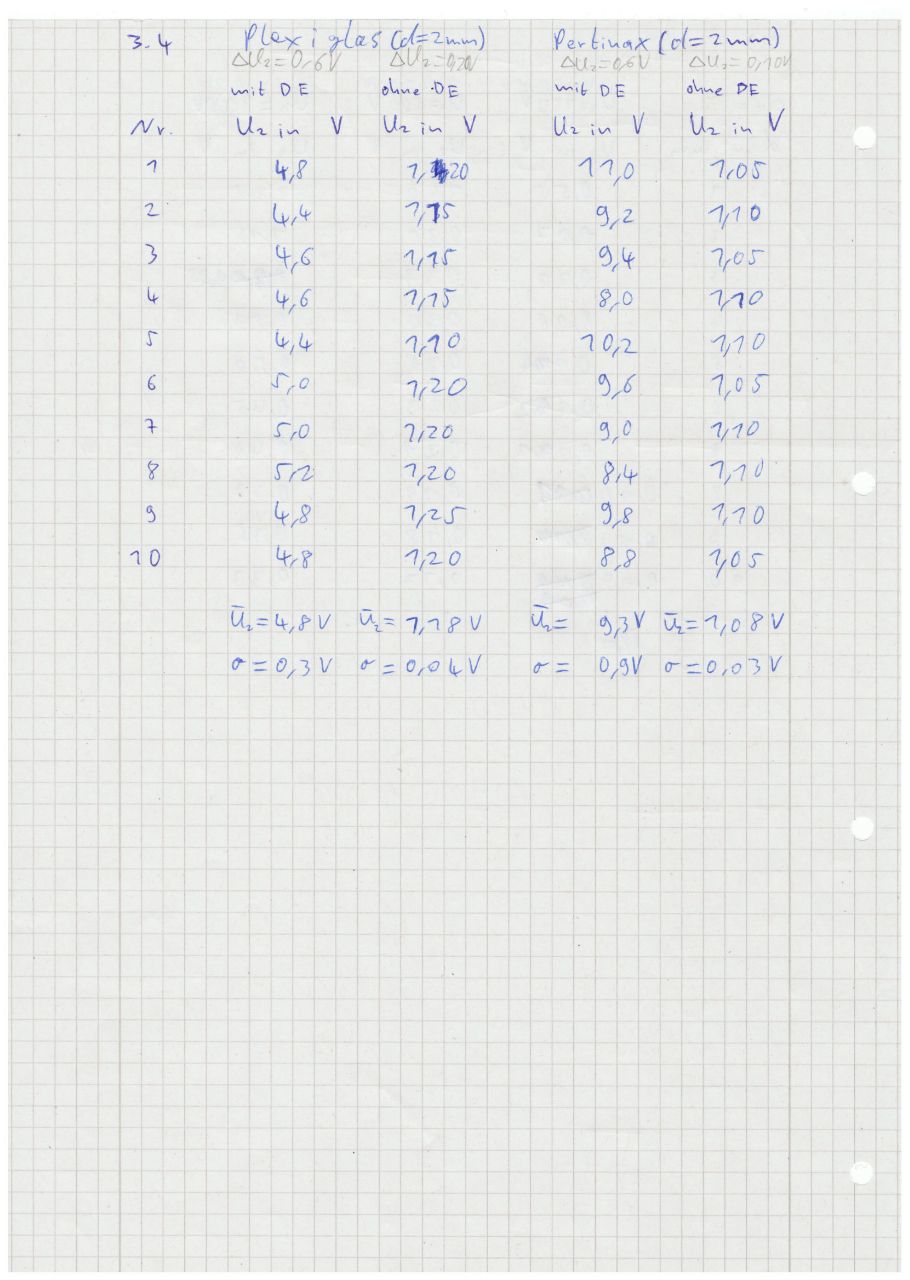 3.4 Plexiglas (d=2mm) Pertinax (d=2mm)
ΔU₂=0,6V ΔU₂=0,20V ΔU₂=0,6V ΔU₂=0,10V
mit DE ohne DE mit DE ohne DE
Nr. U₂ in V U₂ in V U₂ in V U₂ in V
1 4,8 1,20 11,0 1,05
2 4,4 1,15 9,2 1,10
3 4,6 1,15 9,4 1,05
4 4,6 1,15 8,0 1,10
5 4,4 1,10 10,2 1,10
6 5,0 1,20 9,6 1,05
7 5,0 1,20 9,0 1,10
8 5,2 1,20 8,4 1,10
9 4,8 1,25 9,8 1,10
10 4,8 1,20 8,8 1,05
Ū₂=4,8V Ū₂=1,18V Ū₂= 9,3V Ū₂=1,08V
σ=0,3V σ=0,04V σ= 0,9V σ=0,03V